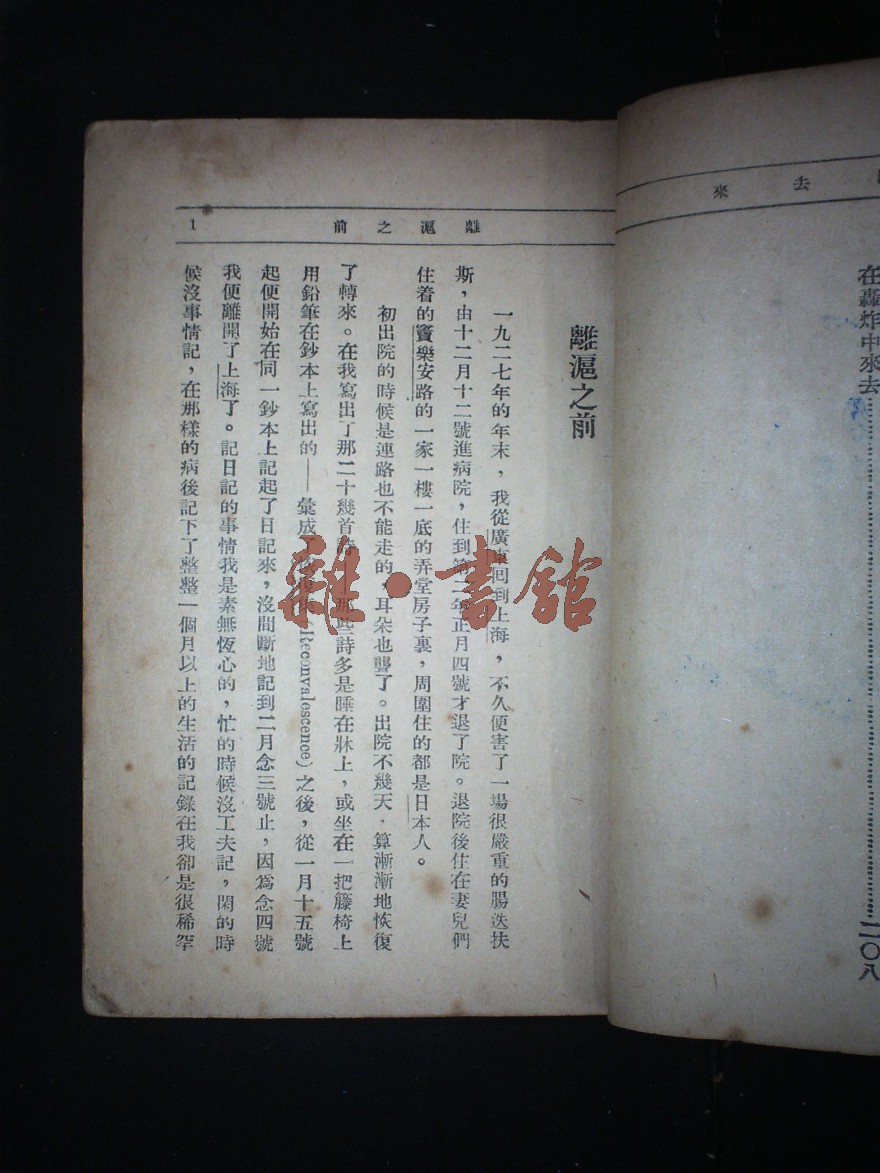 去來
在轟炸中來去……二〇八
離滬之前
1
離滬之前
一九二七年的年末，我從廣東回到上海，不久便害了一場很嚴重的腸迭扶
斯，由十二月十二號進病院，住到第二年正月四號才退了院。退院後住在妻兒們
住着的竇樂安路的一家一樓一底的弄堂房子裏，周圍住的都是日本人。
初出院的時候是連路也不能走的，耳朵也聾了。出院不幾天，算漸漸地恢復
了轉來。在我寫出了那二十幾首詩——那些詩多是睡在牀上，或坐在一把籐椅上
用鉛筆在鈔本上寫出的——彙成 Reconvalescence)之後，從一月十五號
起便開始在同一鈔本上記起了日記來，沒間斷地記到二月念三號止，因爲念四號
我便離開了上海了。記日記的事情我是素無恆心的，忙的時候沒工夫記，閑的時
候沒事情記，在那樣的病後記下了整整一個月以上的生活的記錄在我卻是很稀罕
雜·書館